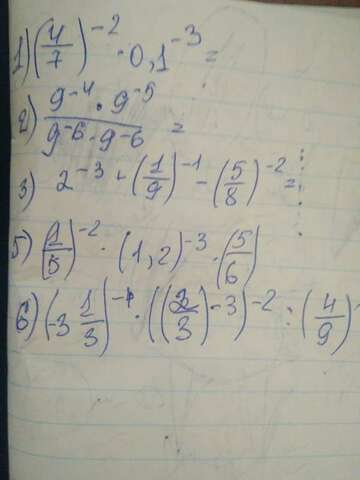 1) (4/7)^-2 · 0,1^-3 =
2) (9^-4 · 9^-5)/(9^-6 · 9^-6) =
3) 2^-3 + (1/9)^-1 - (5/8)^-2 =
5) (1/5)^-2 · (1,2)^-3 · (5/6)
6) (-3 1/3)^-4 · ((2/3)^-3)^-2 : (4/9)^-